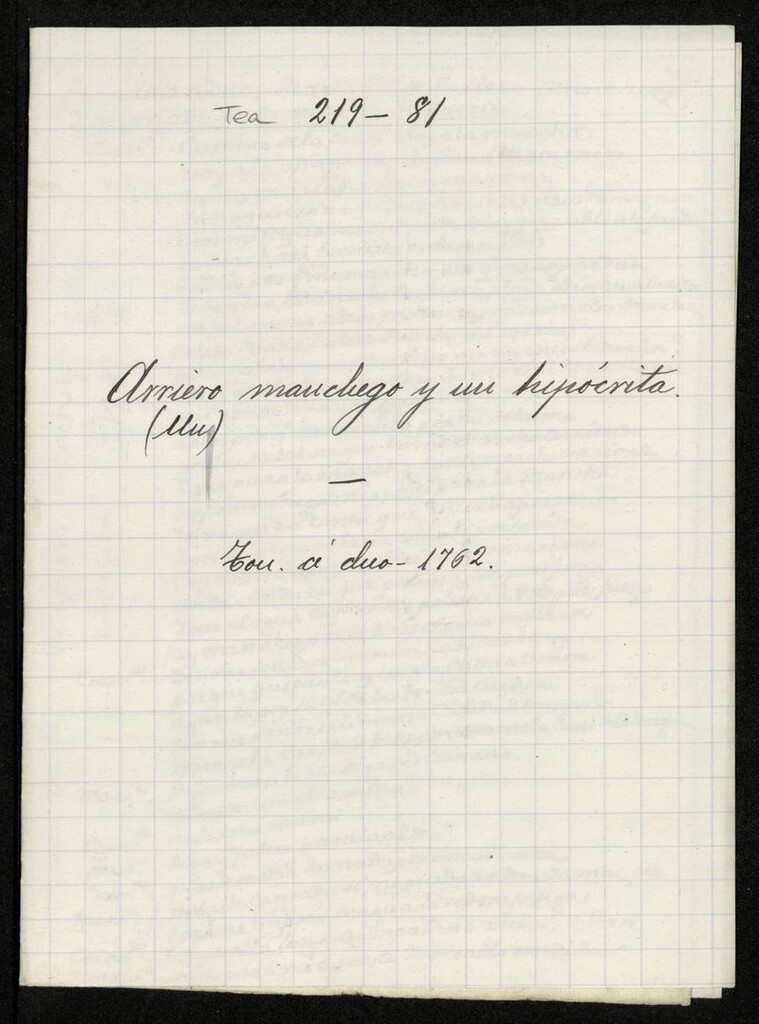 Tea 219-81
Arriero manchego y un hipócrita.
(Un)
—
Ton. á duo - 1762.